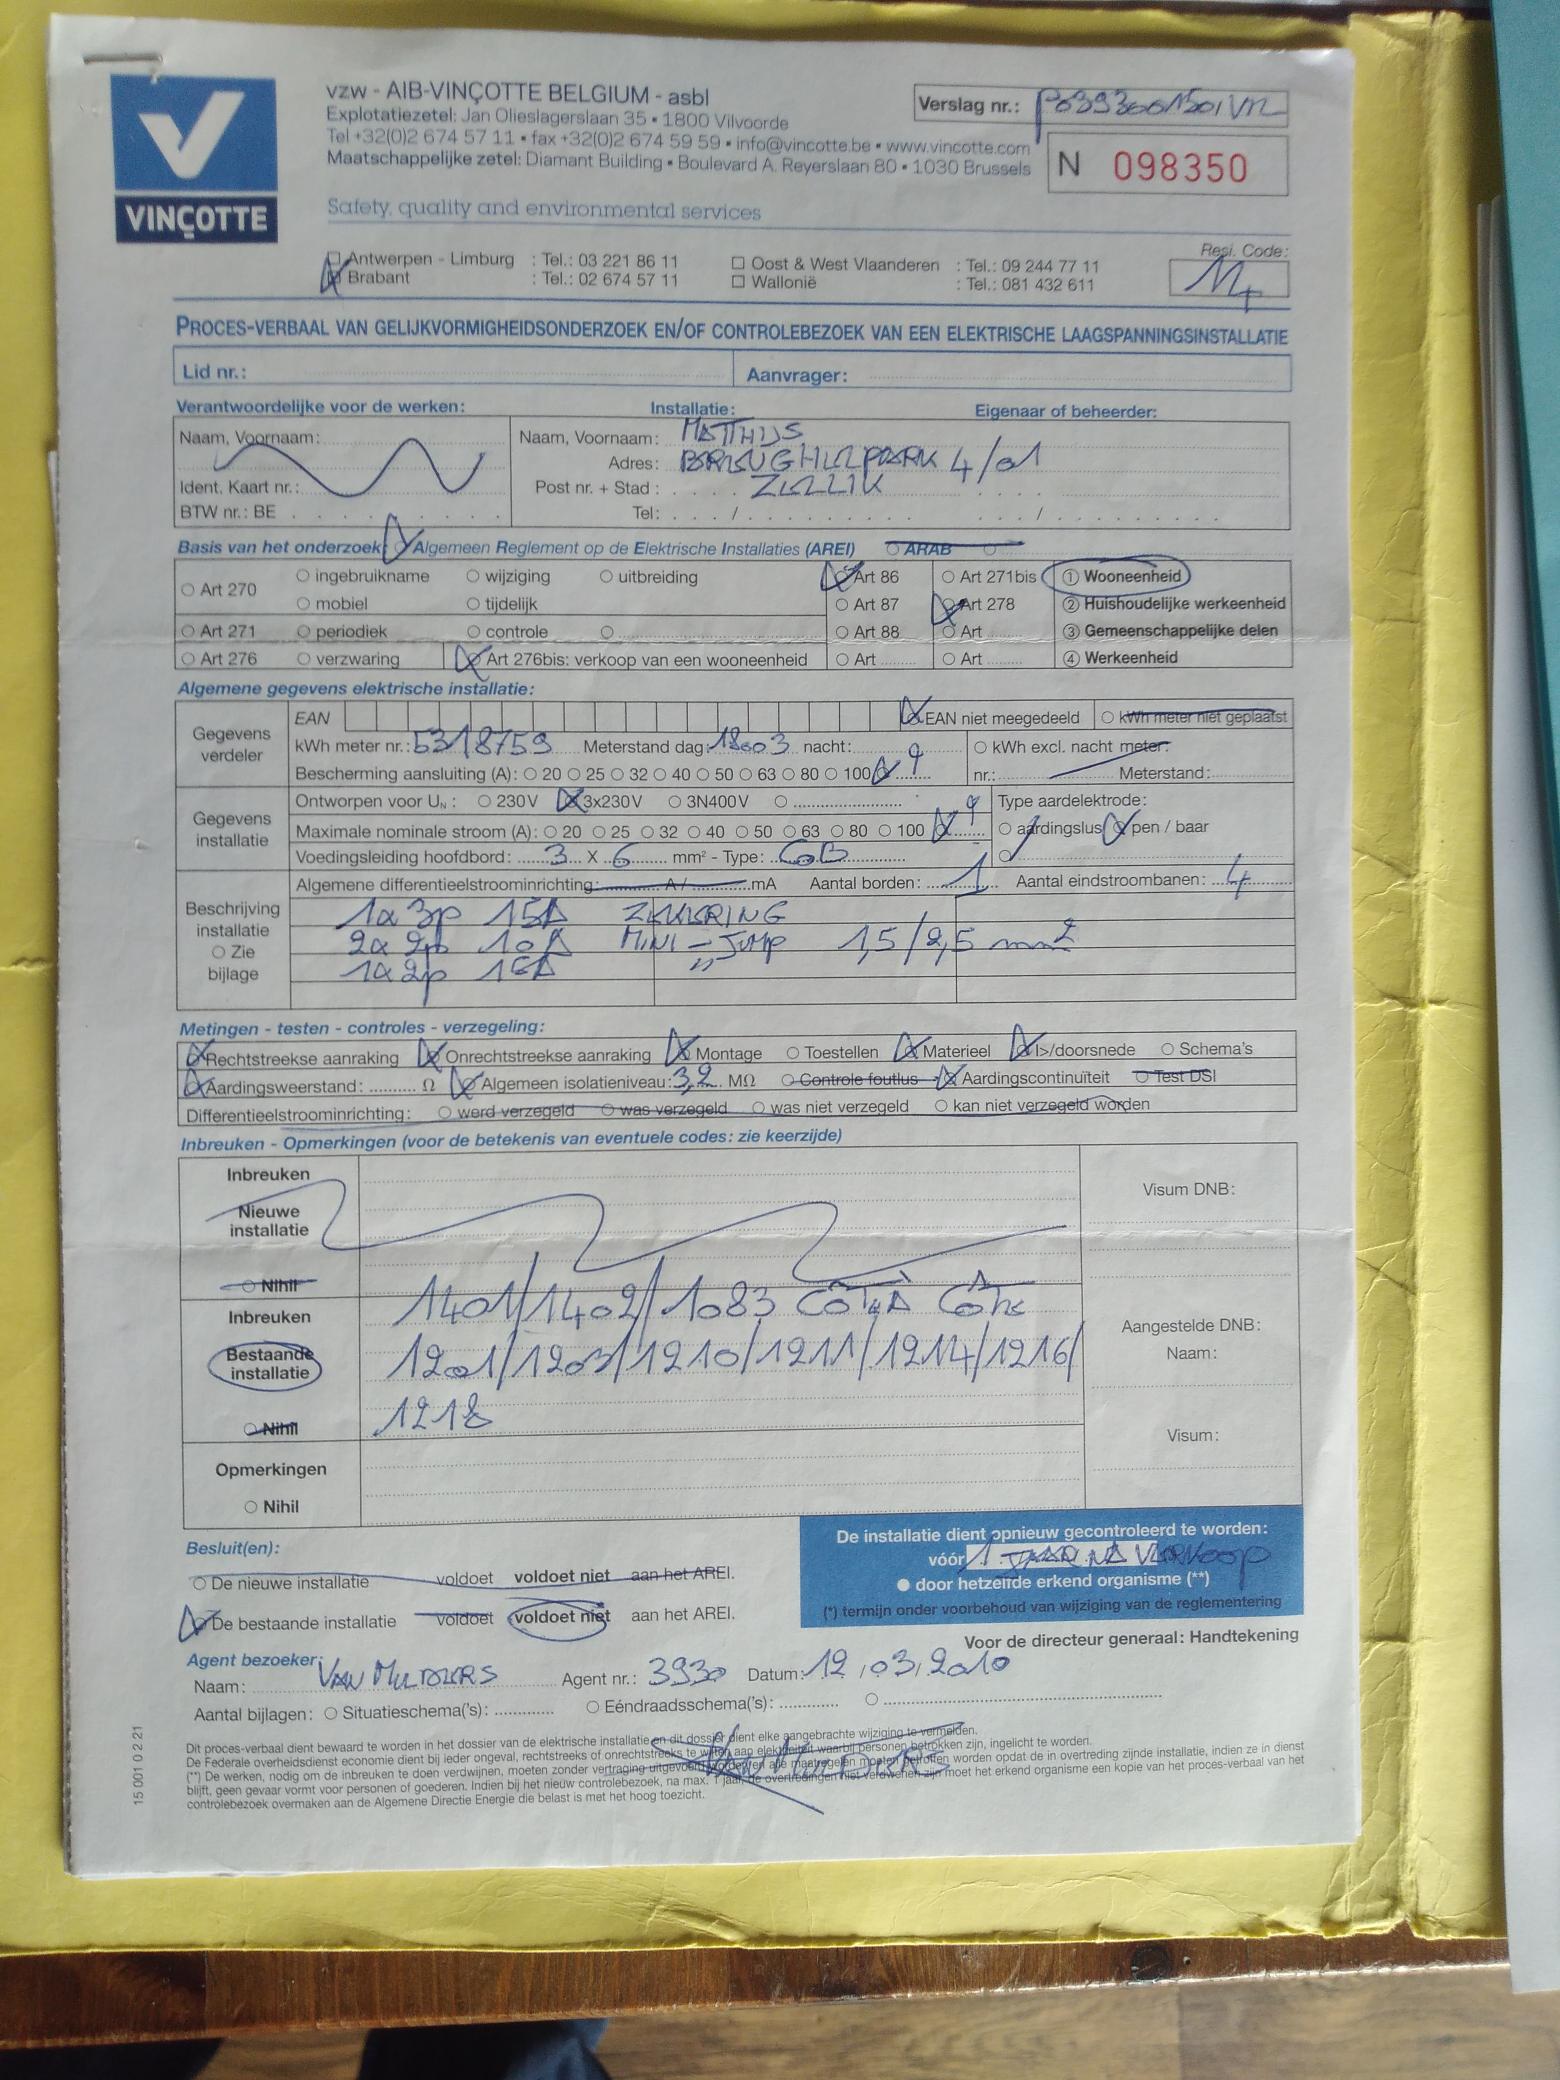 vzw - AIB-VINÇOTTE BELGIUM - asbl
Explotatiezetel: Jan Olieslagerslaan 35 • 1800 Vilvoorde
Tel +32(0)2 674 57 11 • fax +32(0)2 674 59 59 • info@vincotte.be • www.vincotte.com
Maatschappelijke zetel: Diamant Building • Boulevard A. Reyerslaan 80 • 1030 Brussels
Verslag nr.:
N 098350
VINÇOTTE
Safety, quality and environmental services
Antwerpen - Limburg : Tel.: 03 221 86 11 Oost & West Vlaanderen : Tel.: 09 244 77 11
Brabant : Tel.: 02 674 57 11 Wallonië : Tel.: 081 432 611
Resi. Code:
PROCES-VERBAAL VAN GELIJKVORMIGHEIDSONDERZOEK EN/OF CONTROLEBEZOEK VAN EEN ELEKTRISCHE LAAGSPANNINGSINSTALLATIE
Lid nr.: Aanvrager:
Verantwoordelijke voor de werken: Installatie: Eigenaar of beheerder:
Naam, Voornaam: Naam, Voornaam: MATTHIJS
Adres: 4/01
Ident. Kaart nr.: Post nr. + Stad : ZELLIK
BTW nr.: BE Tel: / /
Basis van het onderzoek: Algemeen Reglement op de Elektrische Installaties (AREI) ARAB
Art 270 ingebruikname wijziging uitbreiding Art 86 Art 271bis 1 Wooneenheid
mobiel tijdelijk Art 87 Art 278 2 Huishoudelijke werkeenheid
Art 271 periodiek controle Art 88 Art 3 Gemeenschappelijke delen
Art 276 verzwaring Art 276bis: verkoop van een wooneenheid Art Art 4 Werkeenheid
Algemene gegevens elektrische installatie:
Gegevens verdeler
EAN EAN niet meegedeeld kWh meter niet geplaatst
kWh meter nr.: 5318759 Meterstand dag: 18003 nacht: kWh excl. nacht meter:
Bescherming aansluiting (A): 20 25 32 40 50 63 80 100 ? nr.: Meterstand:
Gegevens installatie
Ontworpen voor UN : 230V 3x230V 3N400V Type aardelektrode:
Maximale nominale stroom (A): 20 25 32 40 50 63 80 100 ? aardingslus pen / baar
Voedingsleiding hoofdbord: 3 X 6 mm² - Type:
Algemene differentieelstroominrichting: A / mA Aantal borden: 1 Aantal eindstroombanen: 4
Beschrijving installatie
Zie bijlage
1x 3p 15A ZEKERING
2x 2p 10A MINI-JUMP 1,5/2,5 mm2
1x 2p 16A "
Metingen - testen - controles - verzegeling:
Rechtstreekse aanraking Onrechtstreekse aanraking Montage Toestellen Materieel I>/doorsnede Schema's
Aardingsweerstand: Ω Algemeen isolatieniveau: 3,2 MΩ Controle foutlus Aardingscontinuïteit Test DSI
Differentieelstroominrichting: werd verzegeld was verzegeld was niet verzegeld kan niet verzegeld worden
Inbreuken - Opmerkingen (voor de betekenis van eventuele codes: zie keerzijde)
Inbreuken
Nieuwe installatie
Nihil
Visum DNB:
Inbreuken
Bestaande installatie
Nihil
1401/1402/1083
1201/1203/1210/1211/1214/1216/
1218
Aangestelde DNB:
Naam:
Visum:
Opmerkingen
Nihil
Besluit(en):
De nieuwe installatie voldoet voldoet niet aan het AREI.
De bestaande installatie voldoet voldoet niet aan het AREI.
De installatie dient opnieuw gecontroleerd te worden:
vóór 1 JAAR NA VERKOOP
door hetzelfde erkend organisme (**)
(*) termijn onder voorbehoud van wijziging van de reglementering
Voor de directeur generaal: Handtekening
Agent bezoeker:
Naam: VAN MULDERS Agent nr.: 3930 Datum: 12/03/2010
Aantal bijlagen: Situatieschema('s): Eéndraadsschema('s):
Dit proces-verbaal dient bewaard te worden in het dossier van de elektrische installatie en dit dossier dient elke aangebrachte wijziging te vermelden.
De Federale overheidsdienst economie dient bij ieder ongeval, rechtstreeks of onrechtstreeks te wijten aan elektriciteit waarbij personen betrokken zijn, ingelicht te worden.
(**) De werken, nodig om de inbreuken te doen verdwijnen, moeten zonder vertraging uitgevoerd worden en alle maatregelen moeten getroffen worden opdat de in overtreding zijnde installatie, indien ze in dienst
blijft, geen gevaar vormt voor personen of goederen. Indien bij het nieuw controlebezoek, na max. 1 jaar, de overtredingen niet verdwenen zijn moet het erkend organisme een kopie van het proces-verbaal van het
controlebezoek overmaken aan de Algemene Directie Energie die belast is met het hoog toezicht.
15 001 0 2 21